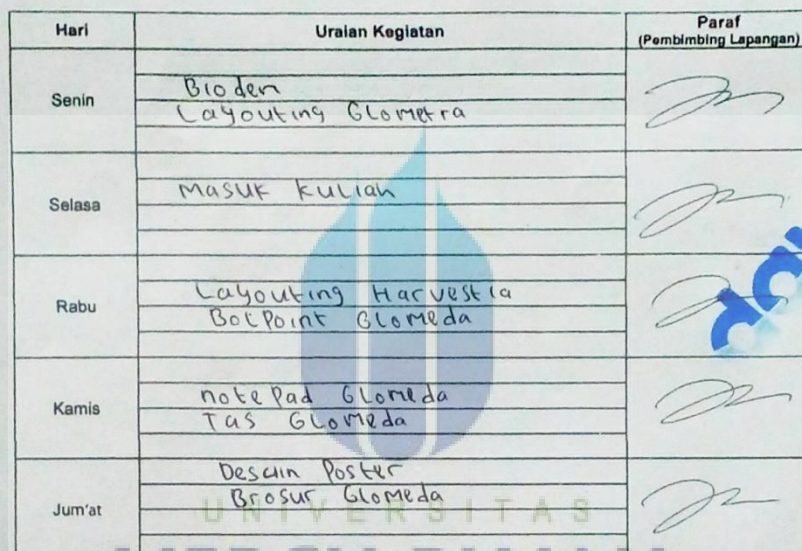 Hari Uraian Kegiatan Paraf
(Pembimbing Lapangan)
Senin
Bioden
Layouting Glometra
Selasa
Masuk kuliah
Rabu
Layouting Harvestia
BolPoint Glomeda
Kamis
notepad Glomeda
Tas Glomeda
Jum'at
Desain Poster
Brosur Glomeda
UNIVERSITAS